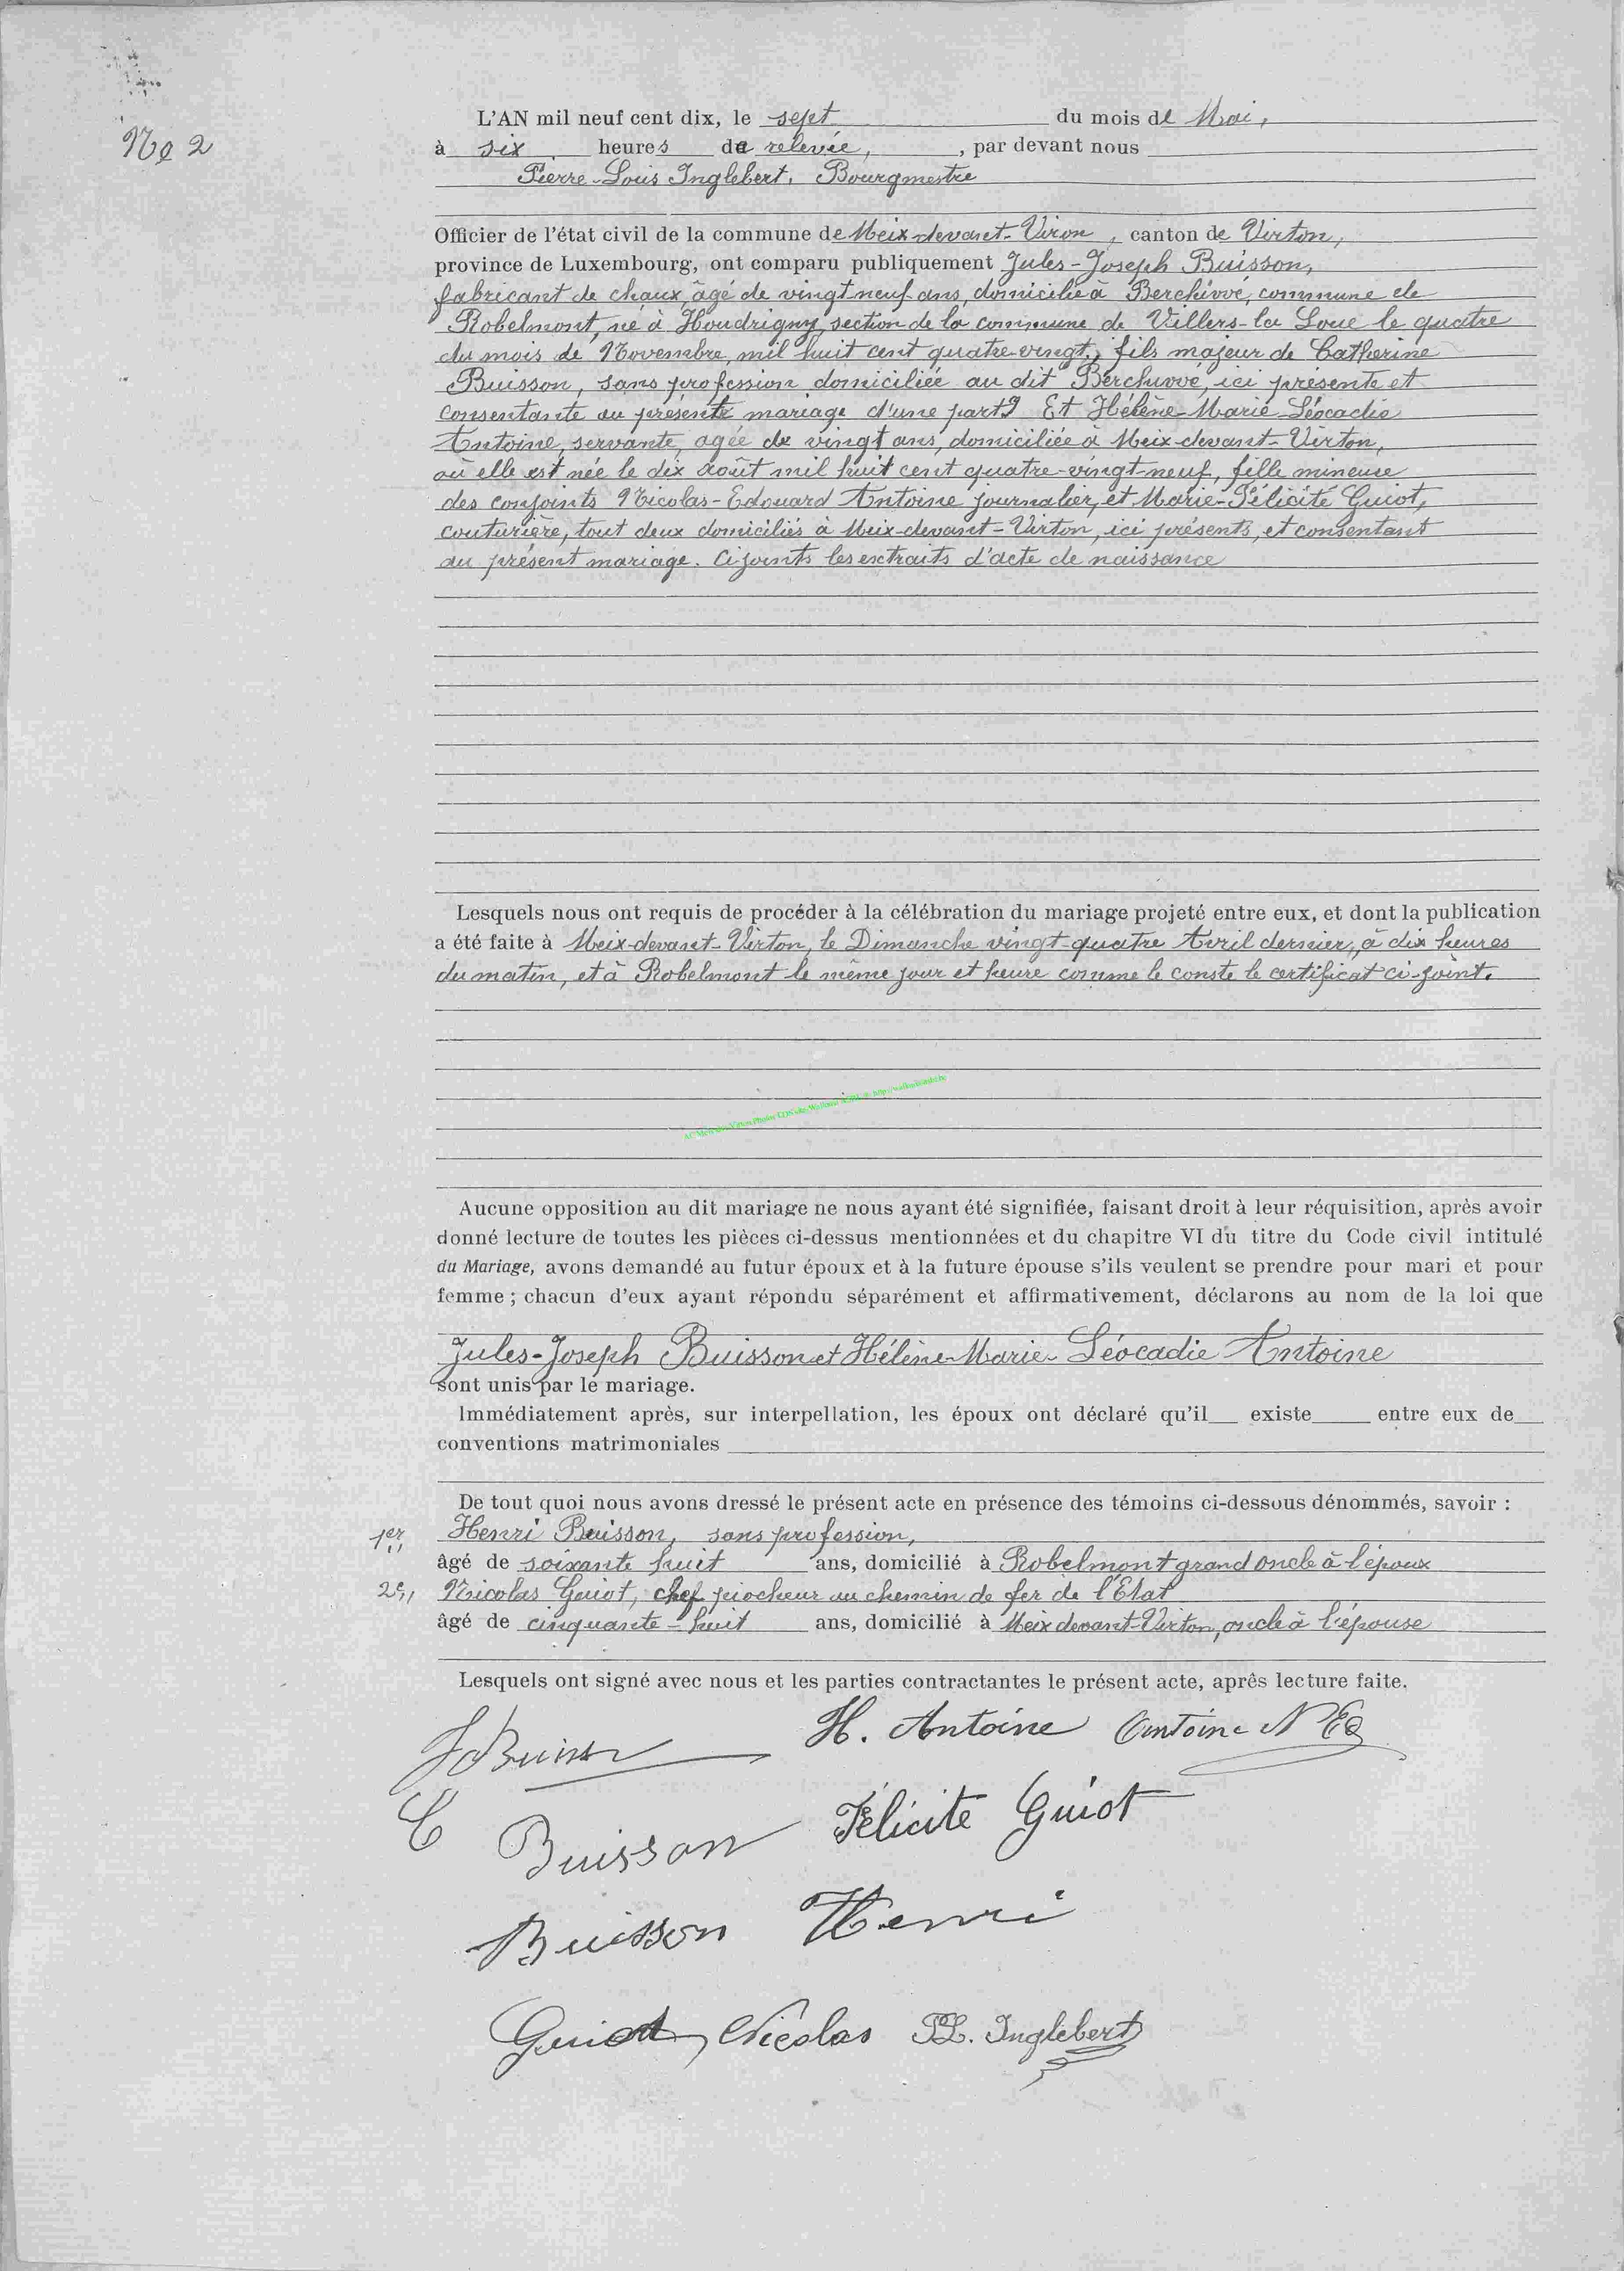 No 2
L'AN mil neuf cent dix, le sept du mois de Mai,
à six heures de relevée, , par devant nous
Pierre-Louis Inglebert, Bourgmestre
Officier de l'état civil de la commune de Meix-devant-Viron, canton de Virton,
province de Luxembourg, ont comparu publiquement Jules-Joseph Buisson,
fabricant de chaux, âgé de vingt neuf ans, domicilié à Berchivvé, commune de
Robelmont, né à Houdrigny, section de la commune de Villers-la Loue le quatre
du mois de Novembre, mil huit cent quatre-vingt, fils majeur de Catherine
Buisson, sans profession domiciliée au dit Berchuvvé, ici présente et
consentante au présente mariage d'une part. Et Hélène-Marie-Léocadie
Antoine, servante, agée de vingt ans, domiciliée à Meix-devant-Virton,
où elle est née le dix août mil huit cent quatre-vingt-neuf, fille mineure
des conjoints Nicolas-Edouard Antoine journalier, et Marie-Félicité Guiot,
couturière, tout deux domiciliés à Meix-devant-Virton, ici présents, et consentant
au présent mariage. Ci joints les extraits d'acte de naissance
Lesquels nous ont requis de procéder à la célébration du mariage projeté entre eux, et dont la publication
a été faite à Meix-devant-Virton, le Dimanche vingt-quatre Avril dernier, à dix heures
du matin, et à Robelmont le même jour et heure comme le conste le certificat ci-joint.
Aucune opposition au dit mariage ne nous ayant été signifiée, faisant droit à leur réquisition, après avoir
donné lecture de toutes les pièces ci-dessus mentionnées et du chapitre VI du titre du Code civil intitulé
du Mariage, avons demandé au futur époux et à la future épouse s'ils veulent se prendre pour mari et pour
femme ; chacun d'eux ayant répondu séparément et affirmativement, déclarons au nom de la loi que
Jules-Joseph Buisson et Hélène-Marie-Léocadie Antoine
sont unis par le mariage.
Immédiatement après, sur interpellation, les époux ont déclaré qu'il existe entre eux de
conventions matrimoniales
De tout quoi nous avons dressé le présent acte en présence des témoins ci-dessous dénommés, savoir :
1er Henri Buisson, sans profession,
âgé de soixante huit ans, domicilié à Robelmont grand oncle à l'époux
2e, Nicolas Guiot, chef piocheur au chemin de fer de l'Etat
âgé de cinquante-huit ans, domicilié à Meix devant-Virton, oncle à l'épouse
Lesquels ont signé avec nous et les parties contractantes le présent acte, après lecture faite.
JBuisson H. Antoine Antoine N Ed
C Buisson Félicite Guiot
Buisson Henri
Guiot, Nicolas PL. Inglebert